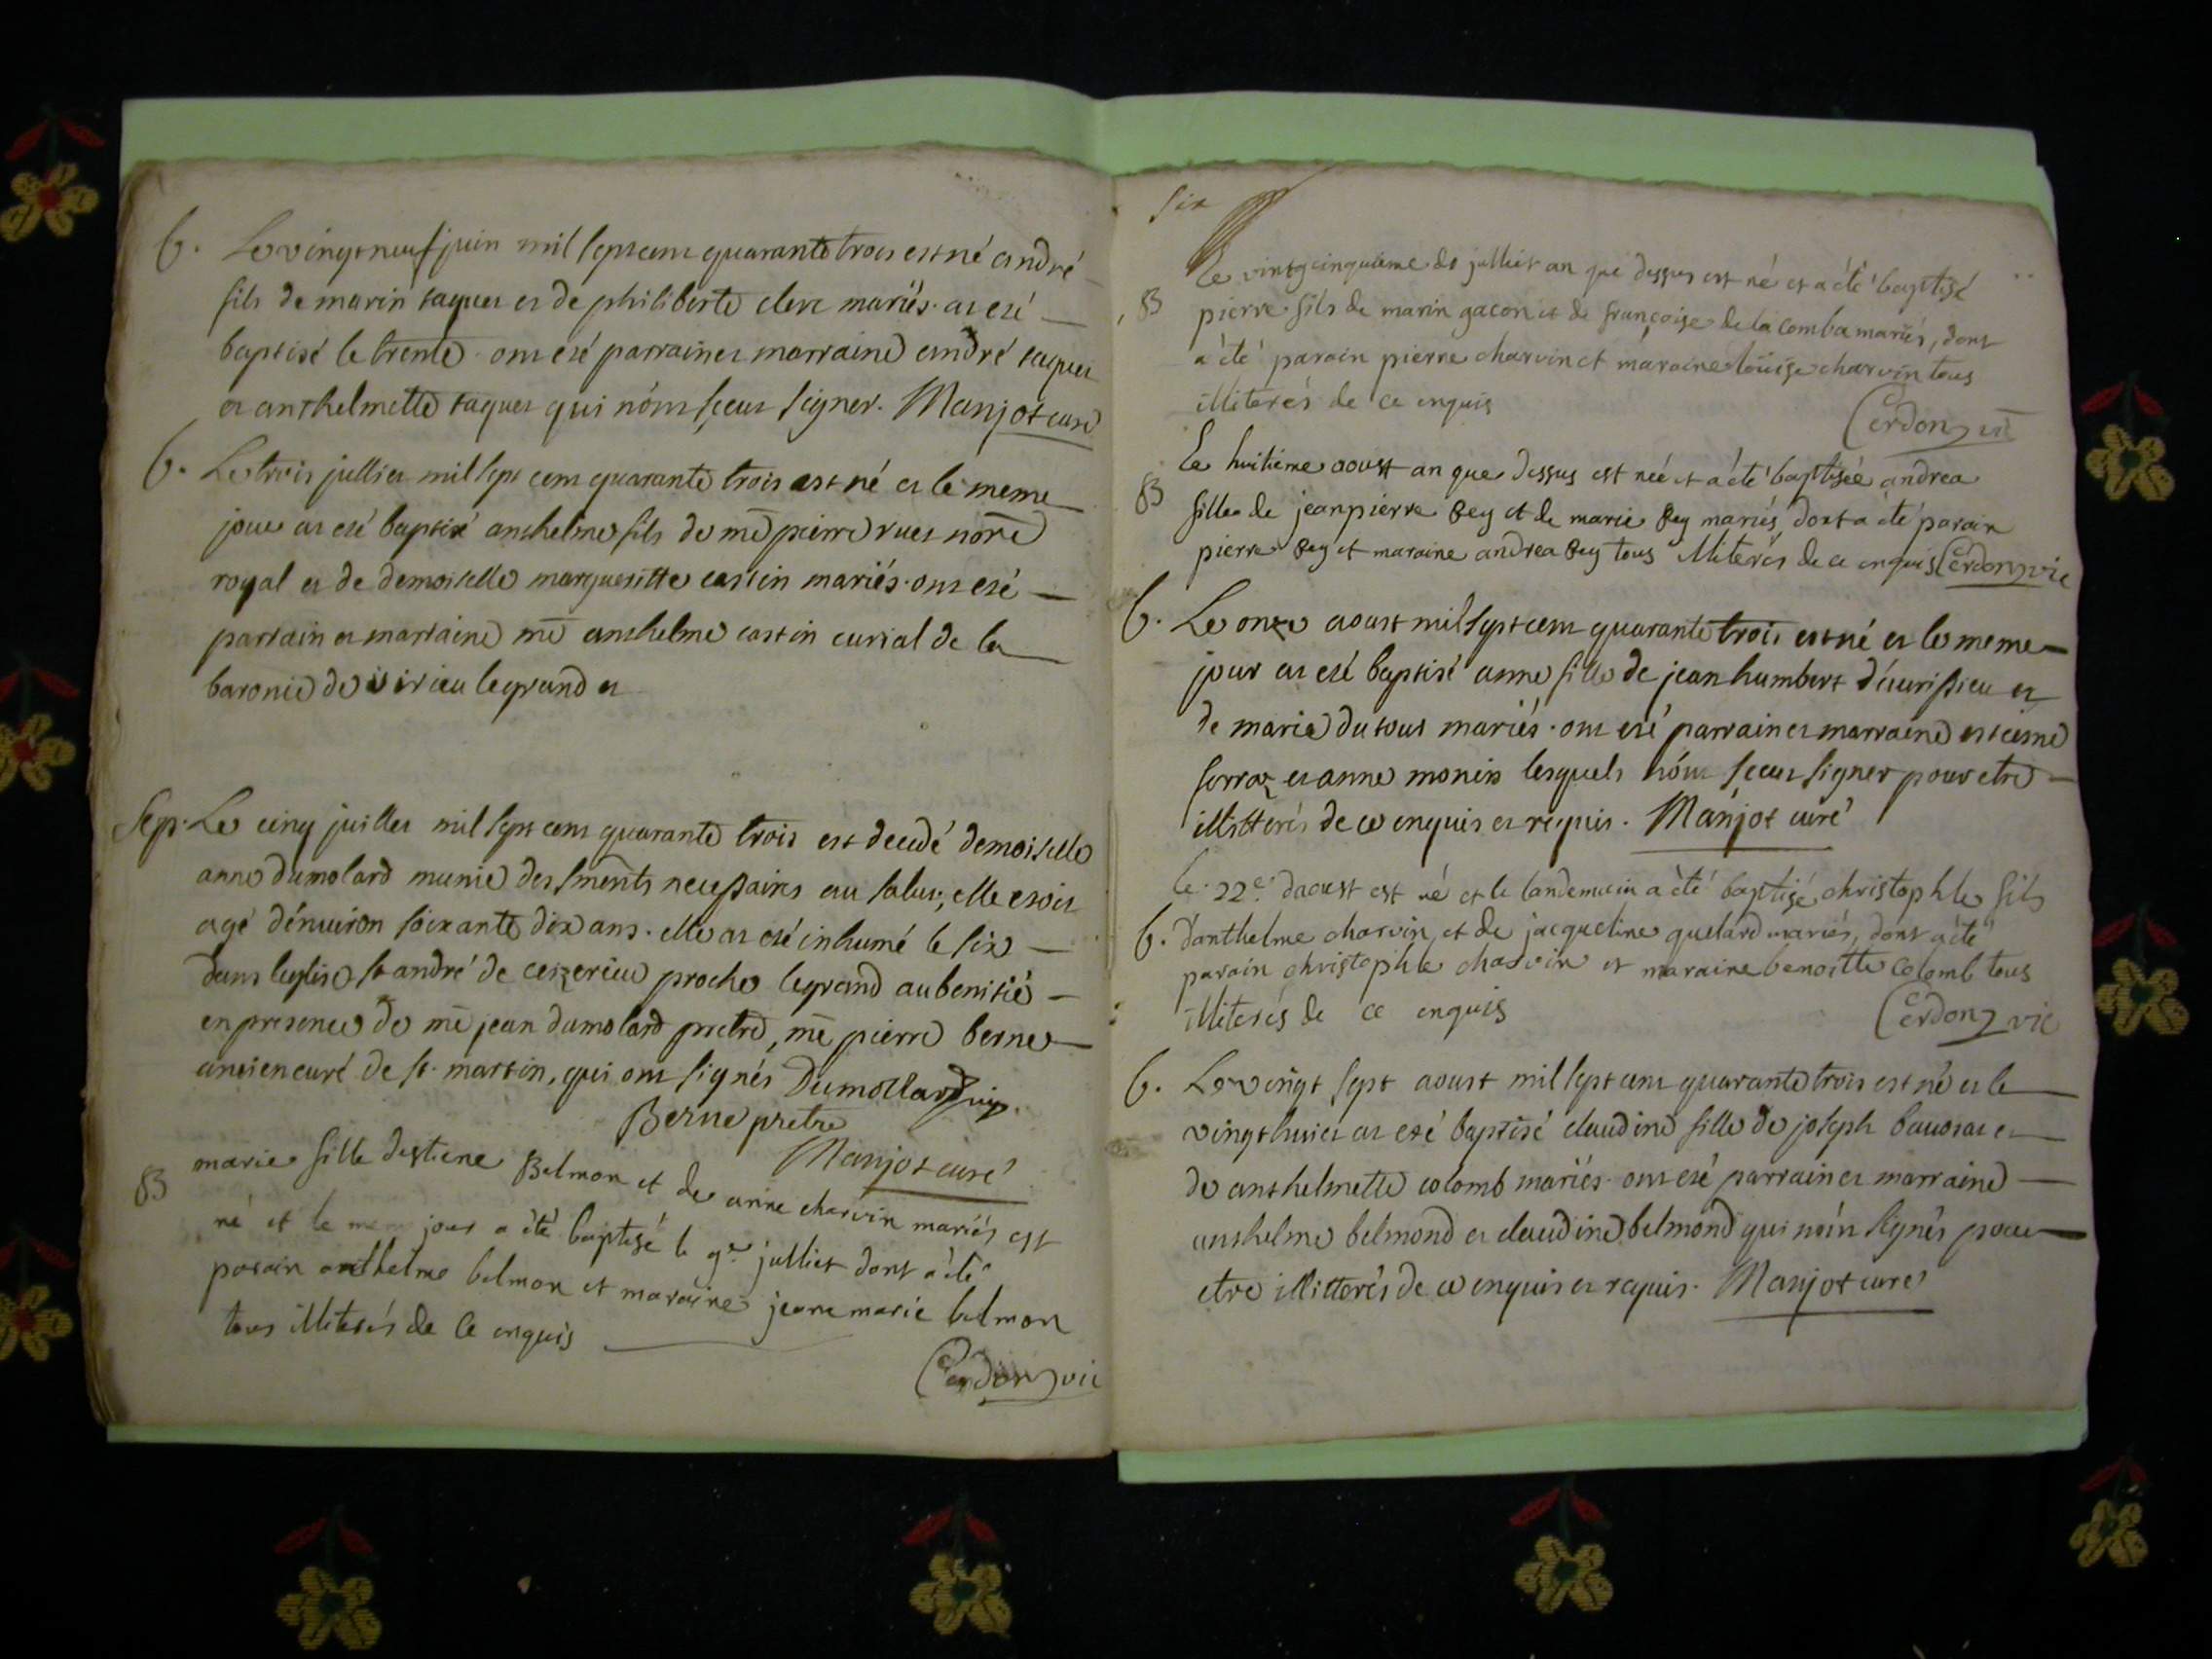 b. Le vingt neuf juin mil sept cent quarante trois est né andré
fils de marin taquet et de philiberte clerc mariés. at eté
baptisé le trente. ont eté parrain et marraine andré taquet
et anthelmette taquet qui n'ont sceut signer. Manjot curé
b. Le trois julliet mil sept cent quarante trois est né et le meme
jour at eté baptisé anthelme fils de me pierre ruet nore
royal et de demoiselle margueritte castin mariés. ont eté
parrain et marraine me anthelme castin curial de la
baronie de virieu le grand et
Sep. Le cinq juillet mil sept cent quarante trois est decedé demoiselle
anne dumolard munie des sments necessaires au salut; elle etoit
agé d'environ soixante dix ans. elle at eté inhumé le six
dans leglise st andré de ceizerieu proche le grand au benitié
en presence de me jean dumolard pretre, me pierre berne
ancien curé de st. martin, qui ont signés Dumollard
Berne pretre
Manjot curé
B marie fille destiene Belmon et de anne charvin mariés est
né et le mem jour a èté baptisé le 9e julliet dont a èté
parain anthelme belmon et maraine jeane marie belmon
tous illiterés de ce enquis
Cerdon vic
six
Le vintgcinquieme de julliet an que dessus est né et a èté baptisé
B pierre fils de marin gacon et de françoise de la comba mariés, dont
a èté parain pierre charvin et maraine loüise charvin tous
illiterés de ce enquis
Cerdon vic
Le huitieme aoust an que dessus est neé et a èté baptiseé andrea
B fille de jeanpierre Bey et de marie Bey mariés dont a èté parain
pierre Bey et maraine andrea Bey tous illiterés de ce enquis Cerdon vic
b. Le onze aoust mil sept cent quarante trois est né et le meme
jour at eté baptisé anne fille de jean humbert d'avrissieu et
de marie du tout mariés. ont eté parrain et marraine
et anne monin lesquels n'ont sceut signer pour etre
illitterés de ce enquis et requis. Manjot curé
le 22e daoust est né et le landemain a èté baptisé christophle fils
b. d'anthelme charvin et de jacqueline quelard mariés, dont a èté
parain christophle charvin et maraine benoitte colomb tous
illiterés de ce enquis
Cerdon vic
b. Le vingt sept aoust mil sept cent quarante trois est né et le
vingt huict at eté baptisé claudine fille de joseph et
de anthelmette colomb mariés. ont eté parrain et marraine
anthelme belmond et claudine belmond qui n'ont signés pour
etre illitterés de ce enquis et requis. Manjot curé